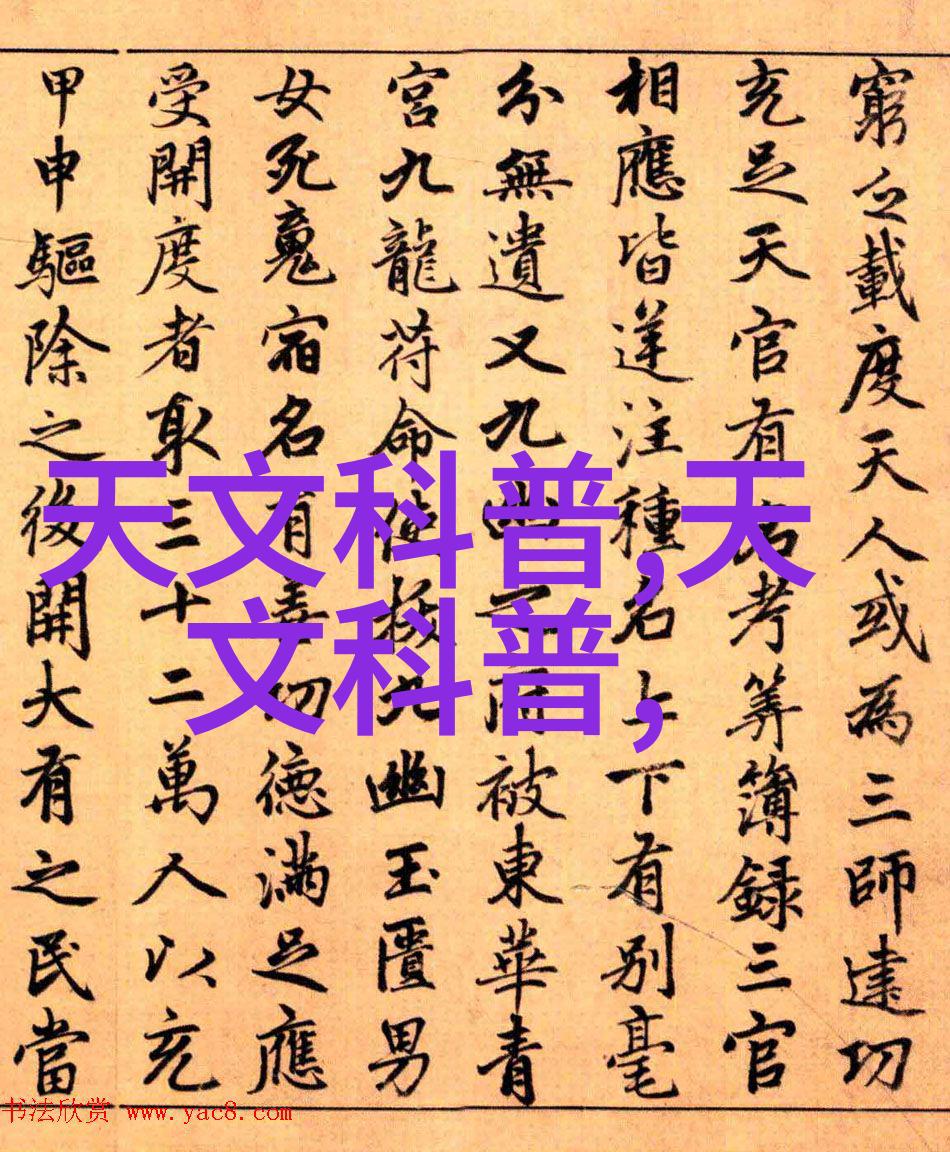 窮之載度天人或為三師建功
充足天官有考考筭簿錄三官
相應皆逆注種名上下有別毫
分無遺又九幽之府被東華青
宮九龍符命使拔九幽玉匱男
女死魂宿名有幸功德滿足應
受開度者取三十二萬人以充
甲申驅除之後開大有之民當
天文科普,天
文科普,
书法欣赏 www.yac8.com